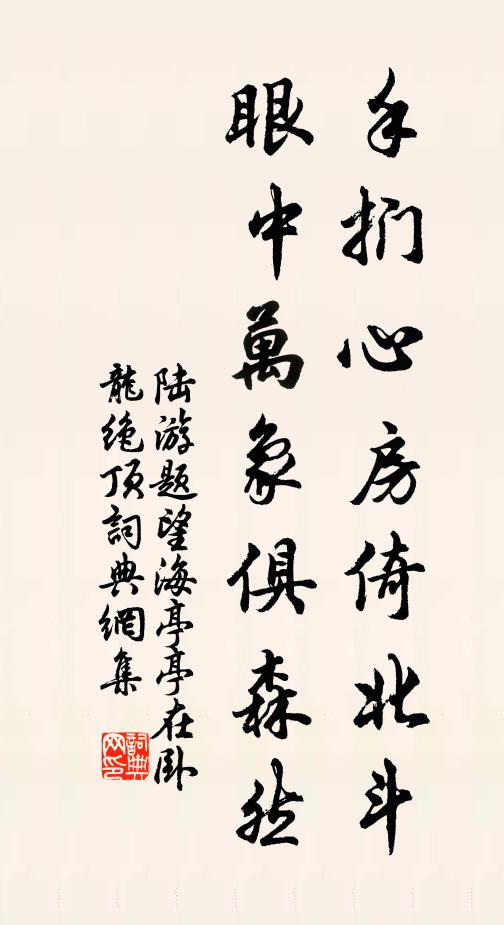 手捫心房倚北斗
眼中萬象俱森然
陆游题望海亭亭在卧
龍绝顶詞典網集
詞典
网印